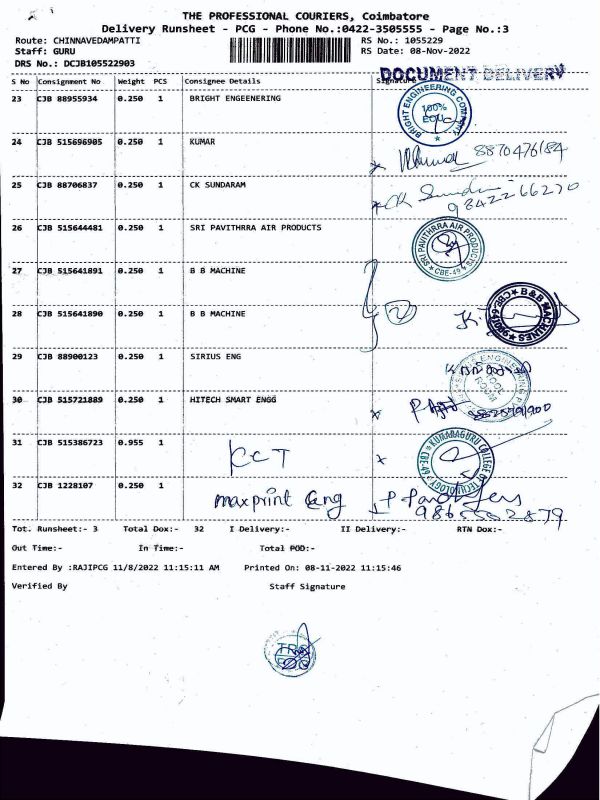 THE PROFESSIONAL COURIERS, Coimbatore
Delivery Runsheet - PCG - Phone No.:0422-3505555 - Page No.:3
Route: CHINNAVEDAMPATTI RS No.: 1055229
Staff: GURU RS Date: 08-Nov-2022
DRS No.: DCJB105522903
DOCUMENT DELIVERY
S No Consignment No Weight PCS Consignee Details Signature
23 CJB 88955934 0.250 1 BRIGHT ENGEENERING
BRIGHT ENGINEERING COMPANY 100% EOU
24 CJB 515696905 0.250 1 KUMAR 8870476184
25 CJB 88706837 0.250 1 CK SUNDARAM CK
9842266270
26 CJB 515644481 0.250 1 SRI PAVITHRRA AIR PRODUCTS
SRI PAVITHRRA AIR PRODUCTS CBE-49
27 CJB 515641891 0.250 1 B B MACHINE
28 CJB 515641890 0.250 1 B B MACHINE
B&B MACHINES
29 CJB 88900123 0.250 1 SIRIUS ENG
ENGINEERING TOOL ROOM
30 CJB 515721889 0.250 1 HITECH SMART ENGG
31 CJB 515386723 0.955 1 CCT
KUMARAGURU COLLEGE OF TECHNOLOGY CBE-49
32 CJB 1228107 0.250 1 maxprint Eng
Tot. Runsheet:- 3 Total Dox:- 32 I Delivery:- II Delivery:- RTN Dox:-
Out Time:- In Time:- Total POD:-
Entered By :RAJIPCG 11/8/2022 11:15:11 AM Printed On: 08-11-2022 11:15:46
Verified By Staff Signature